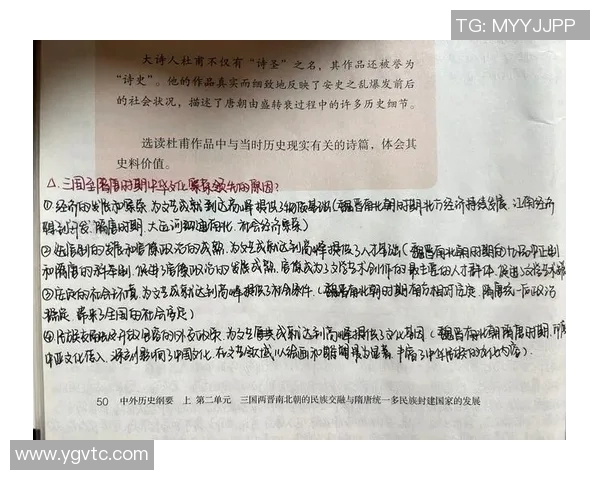 TG: MYYJJPP
大诗人杜甫不仅有“诗圣”之名，其作品还被誉为
“诗史”。他的作品真实而细致地反映了安史之乱爆发前后
的社会状况，描述了唐朝由盛转衰过程中的许多历史细节。
选读杜甫作品中与当时历史现实有关的诗篇，体会其
史料价值。
△.三国至隋唐时期中华文化繁荣领先的原因？
①经济的发展和繁荣，为文艺成就达到高峰提供了物质基础（魏晋南北朝时期北方经济持续发展，江南经济
得到开发，隋唐时期，大运河沟通南北，社会经济繁荣）
②选官制的发展和官僚政治的成熟，为文艺成就达到高峰提供了人才基础（魏晋南北朝时期的九品中正制
和隋唐的科举制，促进了官僚政治的发展成熟，官僚成为了文艺术创作的最主要的人才群体，促进文艺术
③安定的社会环境，为文艺成就达到高峰提供了社会条件（魏晋南北朝时期南方相对安定，隋唐统一后政治
稳定，带来了全国的社会安定）
④民族交融与开放包容的外交政策，为文艺成就达到高峰提供了文化基因（魏晋南北朝隋唐时期，
中亚文化传入，深刻影响了中国文化，在文艺领域以绘画和雕塑最为显著，丰富了中华民族的文化内容）
50 中外历史纲要 上 第二单元 三国两晋南北朝的民族交融与隋唐统一多民族封建国家的发展
www.ygvtc.com